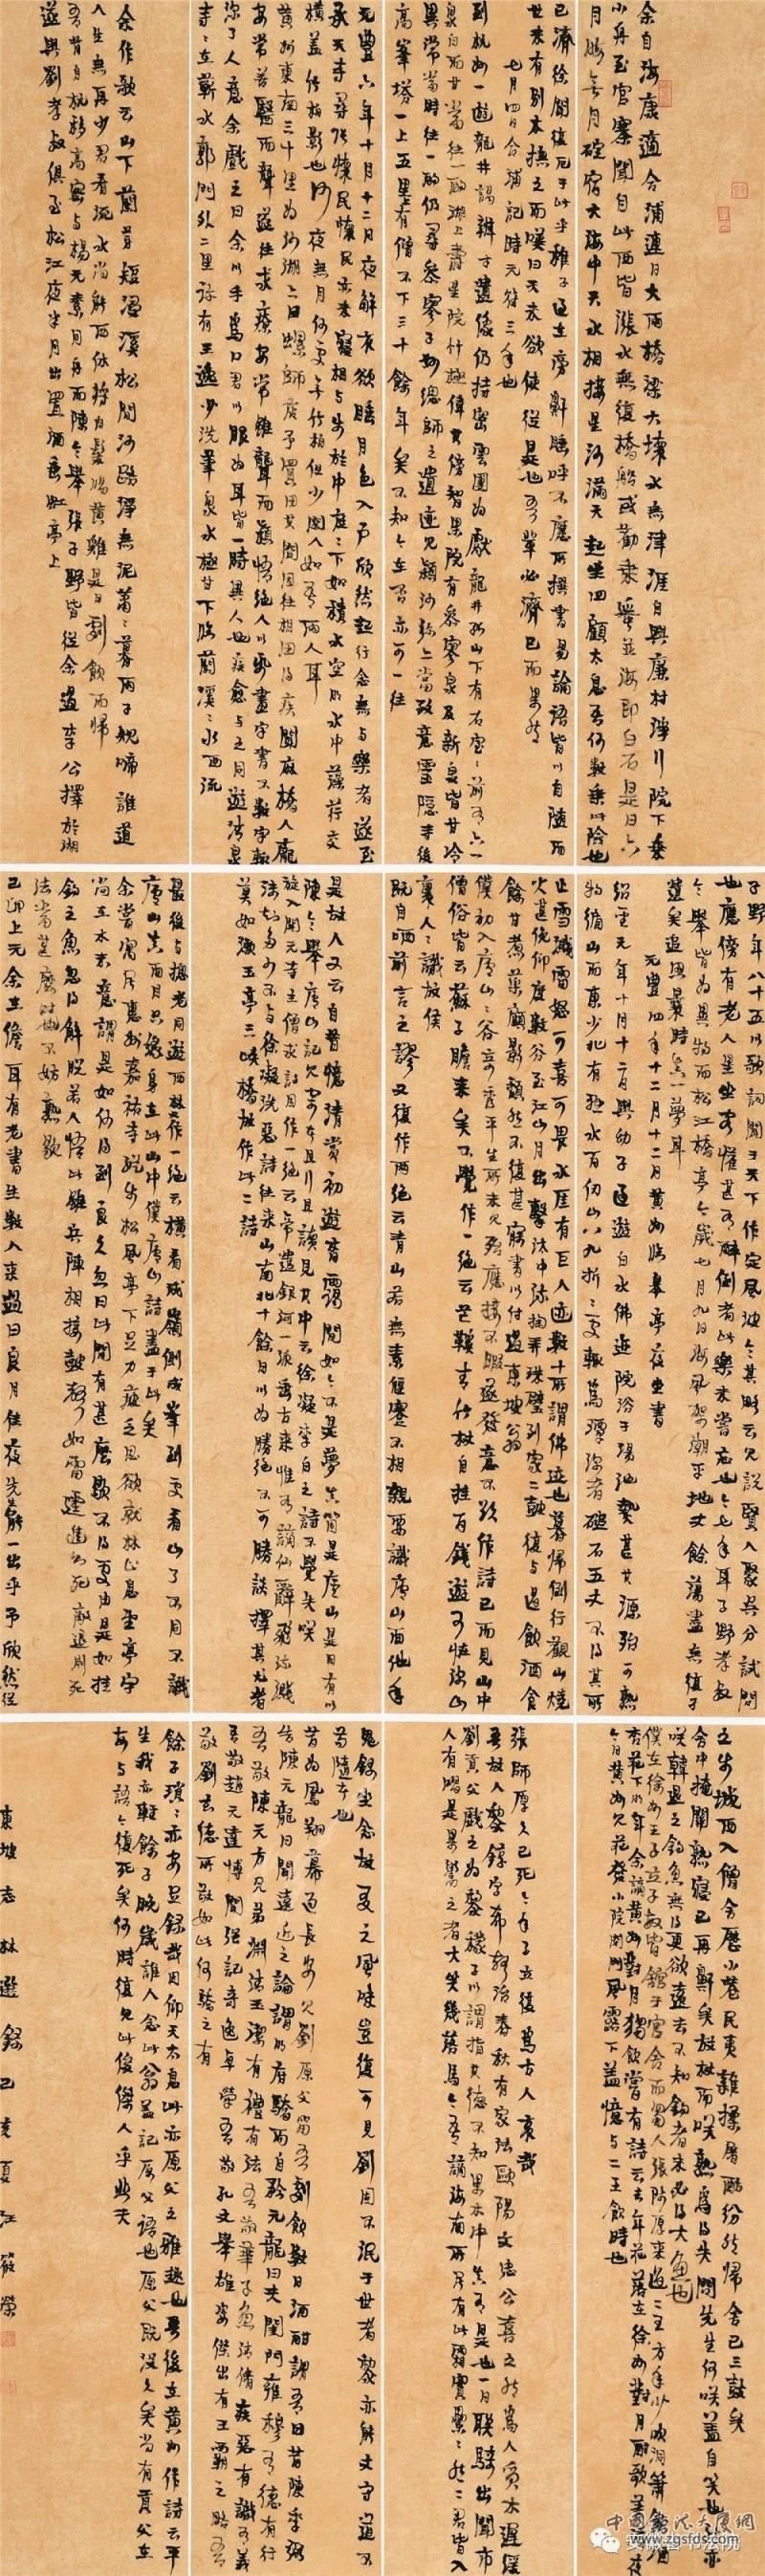 余自海康適合浦連日大雨橋梁大壞水無津涯自興廉村淨行院下乘
小舟至官寨聞自此西皆漲水無復橋船或勸乘蜑並海即白石是日六
月晦無月碇宿大海中天水相接星河滿天起坐四顧太息吾何數乘此險也
已濟徐聞復厄于此乎稚子過在旁鼾睡呼不應所撰書易論語皆以自隨而
世未有別本撫之而嘆曰天未欲使從是也吾輩必濟已而果然
七月四日合浦記時元符三年也
到杭州一遊龍井謁辯才遺像仍持密雲團為獻龍井孤山下有石室〻前有六一
泉白而甘當往一酌湖上壽星院竹極偉其傍智果院有參寥泉及新泉皆甘冷
異常當時往一酌仍尋參寥子妙總師之遺迹見潁沙彌亦當致意靈隱寺後
高峯塔一上五里上有僧不下三十餘年矣不知今在否亦可一往
元豐六年十月十二日夜解衣欲睡月色入戶欣然起行念無與樂者遂至
承天寺尋張懷民懷民亦未寢相與步於中庭〻下如積水空明水中藻荇交
橫蓋竹柏影也何夜無月何處無竹柏但少閒人如吾兩人耳
黃州東南三十里為沙湖亦曰螺師店予買田其間因往相田得疾聞麻橋人龐
安常善醫而聾遂往求療安常雖聾而穎悟絕人以紙畫字書不數字輒
深了人意余戲之曰余以手為口君以眼為耳皆一時異人也疾愈與之同遊清泉
寺〻在蘄水郭門外二里許有王逸少洗筆泉水極甘下臨蘭溪〻水西流
余作歌云山下蘭芽短浸溪松間沙路淨無泥蕭〻暮雨子規啼誰道
人生無再少君看流水尚能西休將白髮唱黃雞是日劇飲而歸
吾昔自杭移高密與楊元素同舟而陳令舉張子野皆從余過李公擇於湖
遂與劉孝叔俱至松江夜半月出置酒垂虹亭上
子野年八十五以歌詞聞于天下作定風波令其略云見說賢人聚吳分試問
也應傍有老人星坐客懽甚有醉倒者此樂未嘗忘也今七年耳子野孝叔
令舉皆為異物而松江橋亭今歲七月九日海風架潮平地丈餘蕩盡無復孑
遺矣追思曩時真一夢耳
元豐四年十二月十二日黃州臨皋亭夜坐書
紹聖元年十月十二日與幼子過遊白水佛迹院浴于湯池熱甚其源殆可熟
物循山而東少北有懸水百仞山八九折〻處輒為潭深者磓石五丈不得其所
止雪濺雷怒可喜可畏水厓有巨人迹數十所謂佛迹也暮歸倒行觀山燒
火甚俛仰度數谷至江山月出擊汰中流掬弄珠璧到家二鼓復與過飲酒食
餘甘煮菜顧影頹然不復甚寐書以付過東坡翁
僕初入廬山〻谷奇秀平生所未見殆應接不暇遂發意不欲作詩已而見山中
僧俗皆云蘇子瞻來矣不覺作一絕云芒鞋青竹杖自挂百錢遊可怪深山
裏人〻識故侯
既自哂前言之謬又復作兩絕云青山若無素偃蹇不相親要識廬山面他年
是故人又云自昔憶清賞初遊杳靄間如今不是夢真箇是廬山是日有以
陳令舉廬山記見寄者且行且讀見其中云徐凝李白之詩不覺失笑
旋入開元寺主僧求詩因作一絕云帝遣銀河一派垂古來惟有謫仙辭飛流濺
沫知多少不與徐凝洗惡詩往來山南北十餘日以為勝絕不可勝談擇其尤者
莫如漱玉亭三峽橋故作此二詩
最後與摠老同遊西林又作一絕云橫看成嶺側成峯到處看山了不同不識
廬山真面目只緣身在此山中僕廬山詩盡于此矣
余嘗寓居惠州嘉祐寺縱步松風亭下足力疲乏思欲就林止息望亭宇
尚在木末意謂是如何得到良久忽曰此間有甚麼歇不得處由是如挂
鈎之魚忽得解脫若人悟此雖兵陣相接鼓聲如雷霆進則死敵退則死
法當甚麼時也不妨熟歇
己卯上元余在儋耳有老書生數人來過曰良月佳夜先生能一出乎予欣然從
之步城西入僧舍歷小巷民夷雜揉屠酤紛然歸舍已三鼓矣
舍中掩關熟寢已再鼾矣放杖而笑孰為得失問先生何笑蓋自笑也然亦
笑韓退之釣魚無得更欲遠去不知釣者未必得大魚也
僕在徐州王子立子敏皆館于官舍而蜀人張師厚來過二王方年少吹洞簫飲酒
杏花下明年余謫黃州對月獨飲嘗有詩云去年花落在徐州對月酣歌美清夜
今日黃州見花發小院閉門風露下蓋憶與二王飲時也
張師厚久已死今年子立復為古人哀哉
吾故人黎錞字希聲治春秋有家法歐陽文忠公喜之然為人質木遲緩
劉貢父戲之為黎檬子以謂指其德不知果木中真有是也一日聯騎出聞市
人有唱是果鬻之者大笑幾落馬今吾謫海南所居有此霜實纍〻然二君皆入
鬼錄坐念故友之風味豈復可見劉固不泯于世者黎亦能文守道不
苟隨者也
昔為鳳翔幕過長安見劉原父留吾劇飲數日酒酣謂吾曰昔陳季弼
告陳元龍曰聞遠近之論謂明府驕而自矜元龍曰夫閨門雍穆有德有行
吾敬陳元方兄弟淵清玉潔有禮有法吾敬華子魚清脩疾惡有識有義
吾敬趙元達博聞強記奇逸卓犖吾敬孔文舉雄姿傑出有王霸之略吾
敬劉玄德所敬如此何驕之有
餘子瑣〻亦安足錄哉因仰天太息此亦原父之雅趣也吾後在黃州作詩云平
生我亦輕餘子晚歲誰人念此翁蓋記原父語也原父既沒久矣尚有貢父在
每與語今復死矣何時復見此俊傑人乎悲夫
東坡志林選錄己亥夏江筱榮
中国书法大厦网
www.zgsfds.com
安徽省书法院